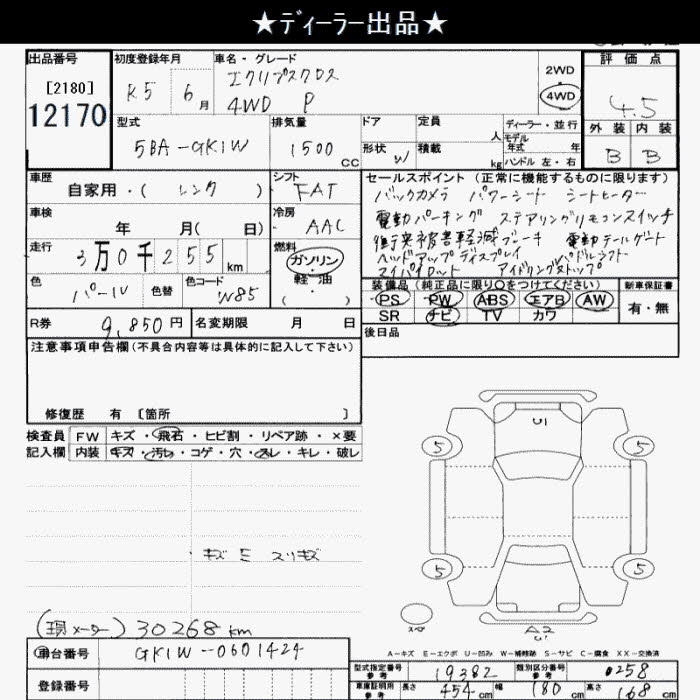 ★ディーラー出品★
出品番号
[2180]
12170
初度登録年月
R5 6月
車名・グレード
エクリプスクロス
4WD P
2WD
4WD
評価点
4.5
外装 内装
B B
型式
5BA-GK1W
排気量
1500 CC
ドア
形状 W
定員 人
積載 kg
ディーラー・並行
モデル年式 年
ハンドル 左・右
車歴
自家用・( レンタ )
シフト
FAT
車検
年 月( 日)
冷房
AAC
走行
3万0千255km
燃料
ガソリン
軽油
( )
色
パール
色替
色コード
W85
セールスポイント(正常に機能するものに限ります)
バックカメラ パワーシート シートヒーター
電動パーキング ステアリングリモコンスイッチ
衝突被害軽減ブレーキ 電動テールゲート
ヘッドアップディスプレイ パドルシフト
マイパイロット アイドリングストップ
装備品(純正品に限り○をつけてください)
PS PW ABS エアB AW
SR ナビ TV カワ
新車保証書
有・無
R券
9,850円
名変期限 月 日
後日品
注意事項申告欄(不具合内容等は具体的に記入して下さい)
修復歴 有 〔箇所 〕
検査員
記入欄
FW キズ・飛石・ヒビ割・リペア跡・×要
内装 キズ・汚レ・コゲ・穴・スレ・キレ・破レ
キズ ミ スリキズ
(現メーター) 30268km
車台番号
GK1W-0601424
登録番号
U1
5 5
5 5
スペ
A2
U1
A-キズ E-エクボ U-凹み W-補修跡 S-サビ C-腐食 XX-交換済
型式指定番号
参考
19382
類別区分番号
参考
0258
車庫証明用
参考
長さ 454cm 幅 180cm 高さ 168cm